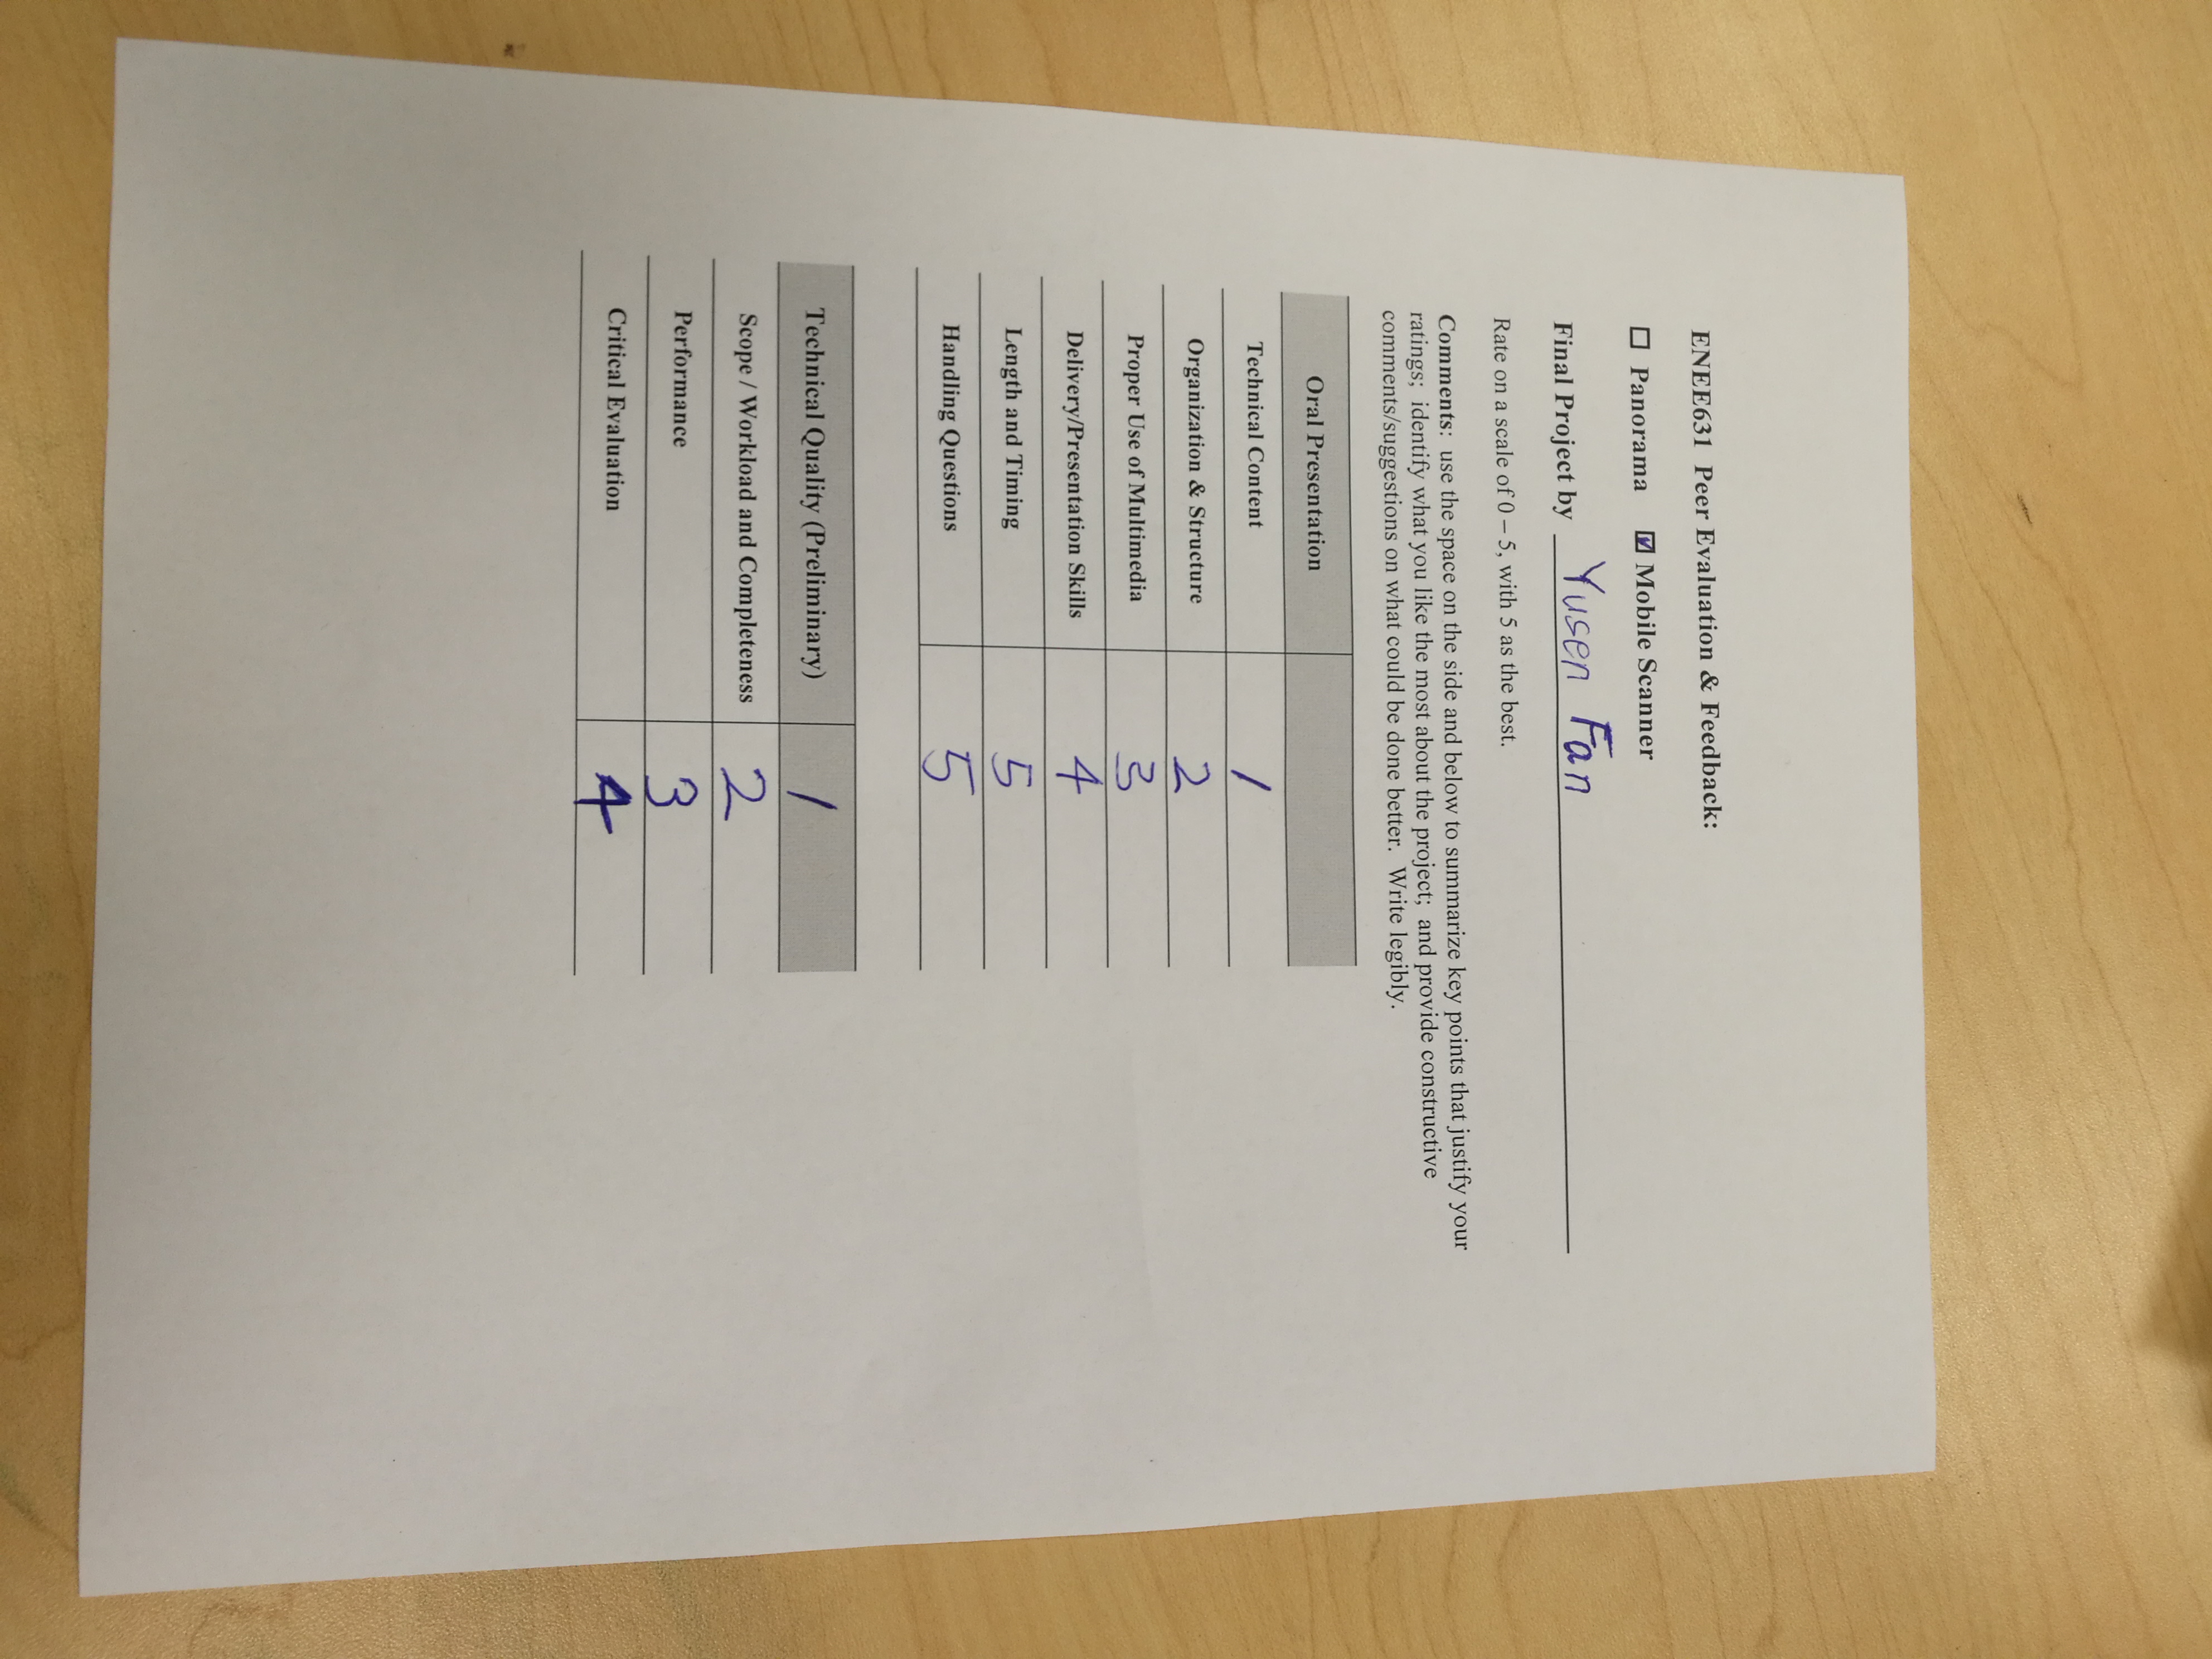 ENEE631 Peer Evaluation & Feedback:
☐ Panorama ☑ Mobile Scanner
Final Project by Yusen Fan
Rate on a scale of 0 – 5, with 5 as the best.
Comments: use the space on the side and below to summarize key points that justify your
ratings; identify what you like the most about the project; and provide constructive
comments/suggestions on what could be done better. Write legibly.
Oral Presentation
Technical Content 1
Organization & Structure 2
Proper Use of Multimedia 3
Delivery/Presentation Skills 4
Length and Timing 5
Handling Questions 5
Technical Quality (Preliminary) 1
Scope / Workload and Completeness 2
Performance 3
Critical Evaluation 4